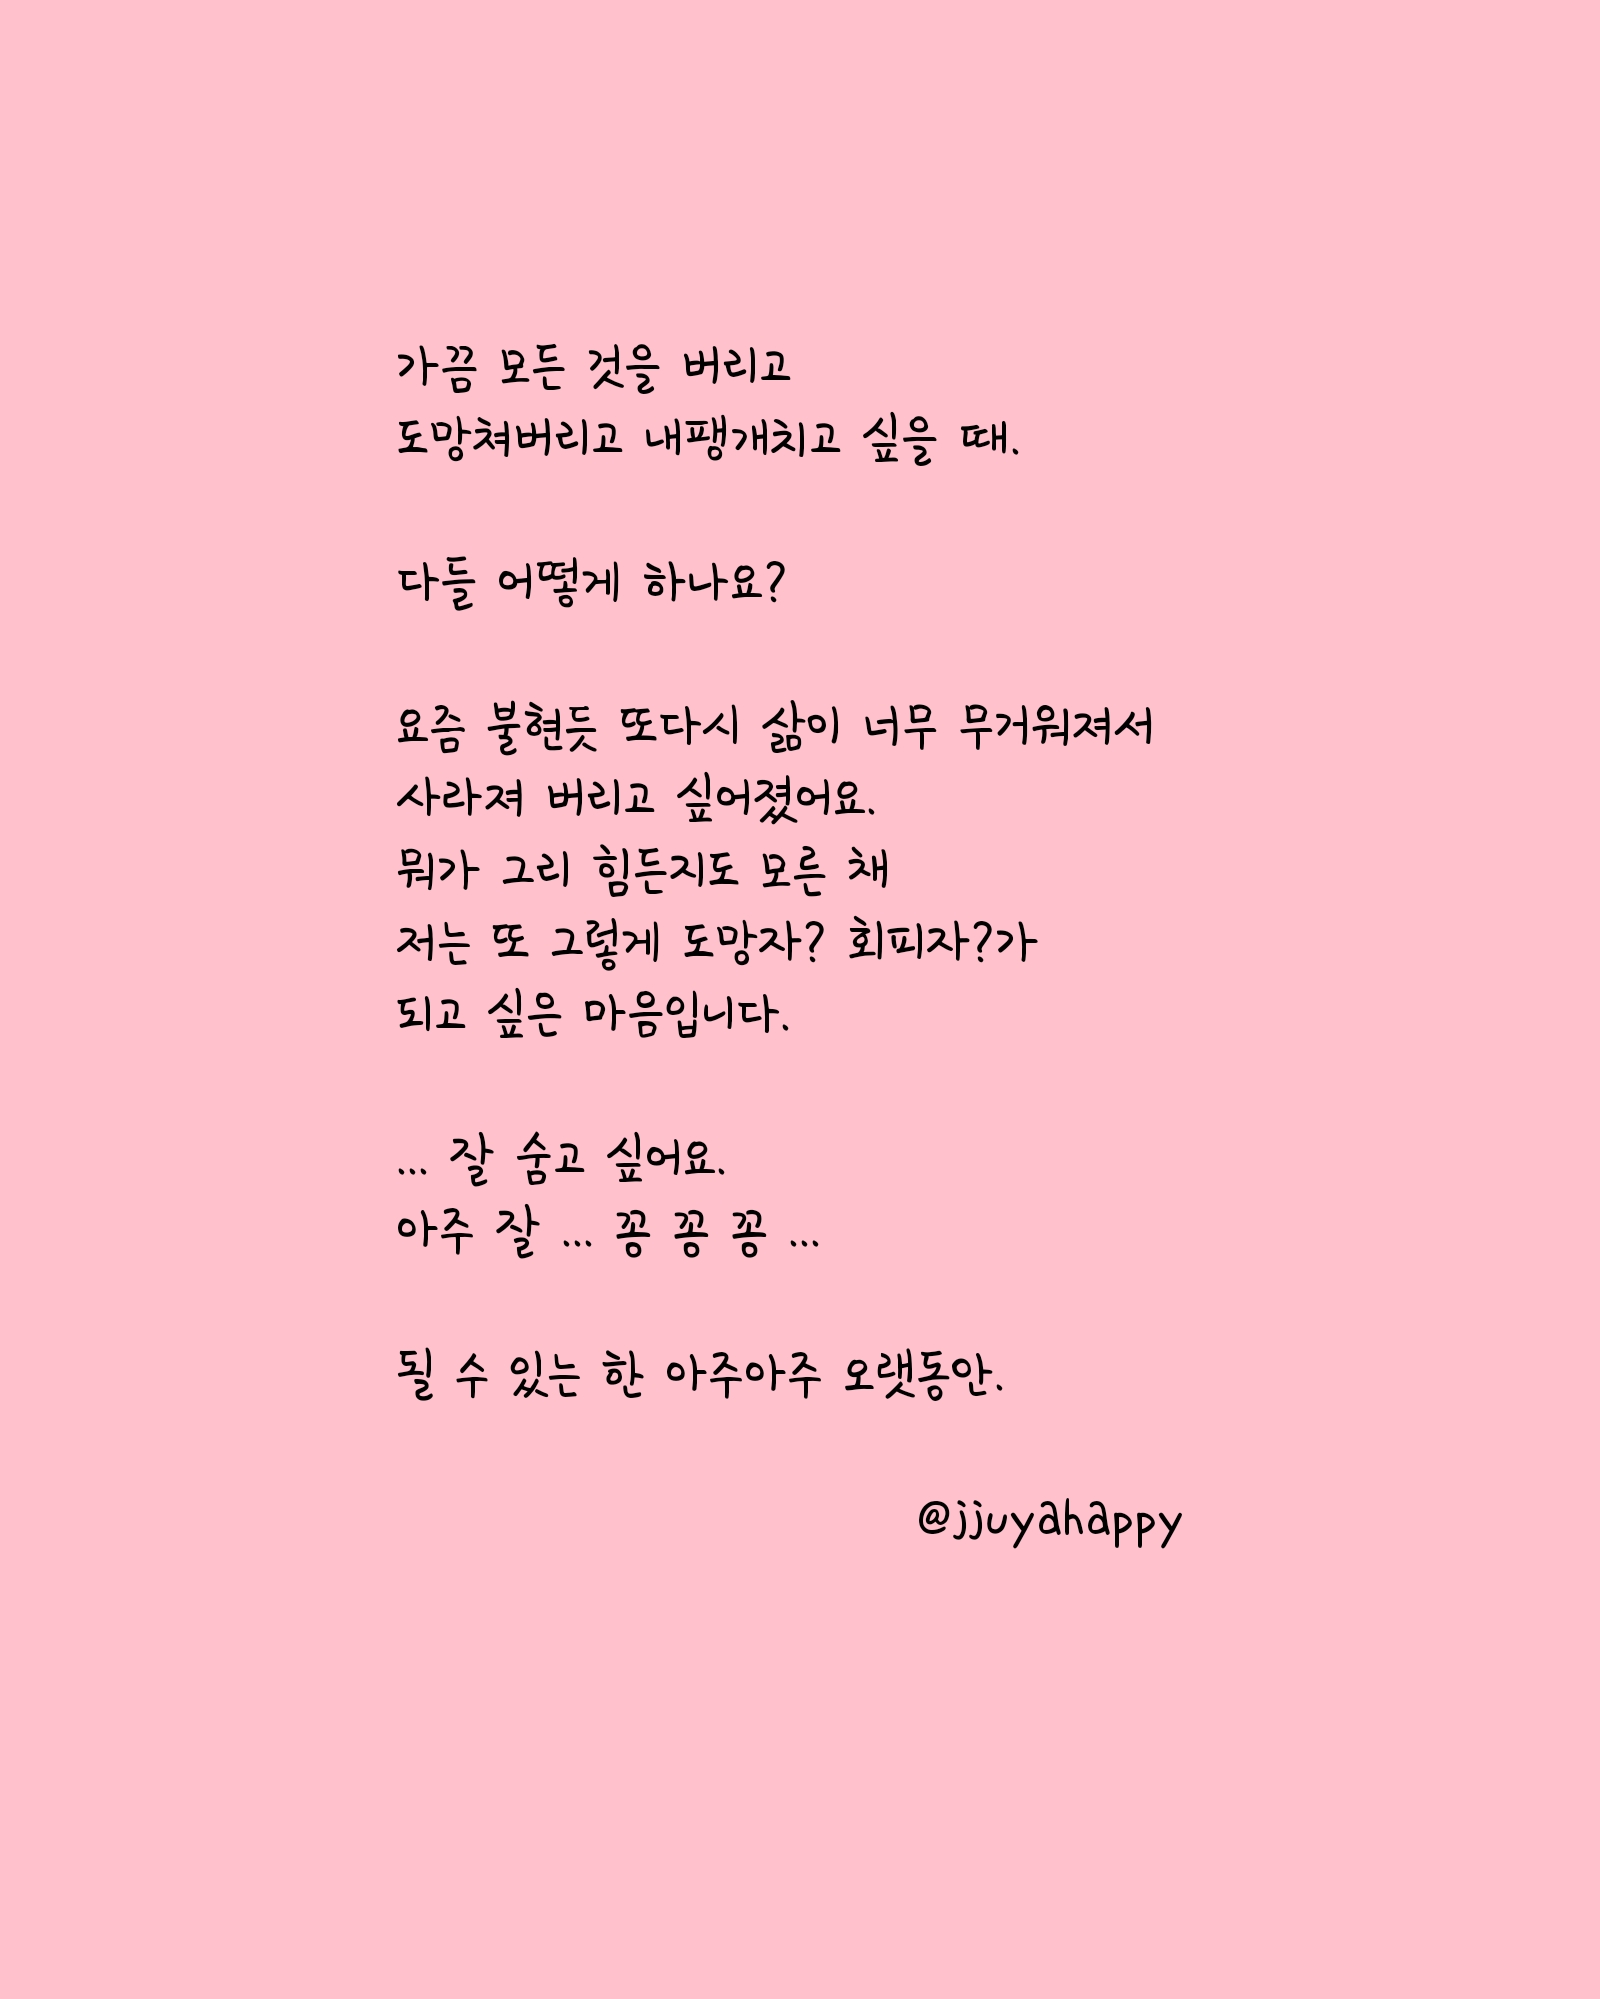 가끔 모든 것을 버리고
도망쳐버리고 내팽개치고 싶을 때.
다들 어떻게 하나요?
요즘 불현듯 또다시 삶이 너무 무거워져서
사라져 버리고 싶어졌어요.
뭐가 그리 힘든지도 모른 채
저는 또 그렇게 도망자? 회피자?가
되고 싶은 마음입니다.
... 잘 숨고 싶어요.
아주 잘 ... 꽁 꽁 꽁 ...
될 수 있는 한 아주아주 오랫동안.
@jjuyahappy